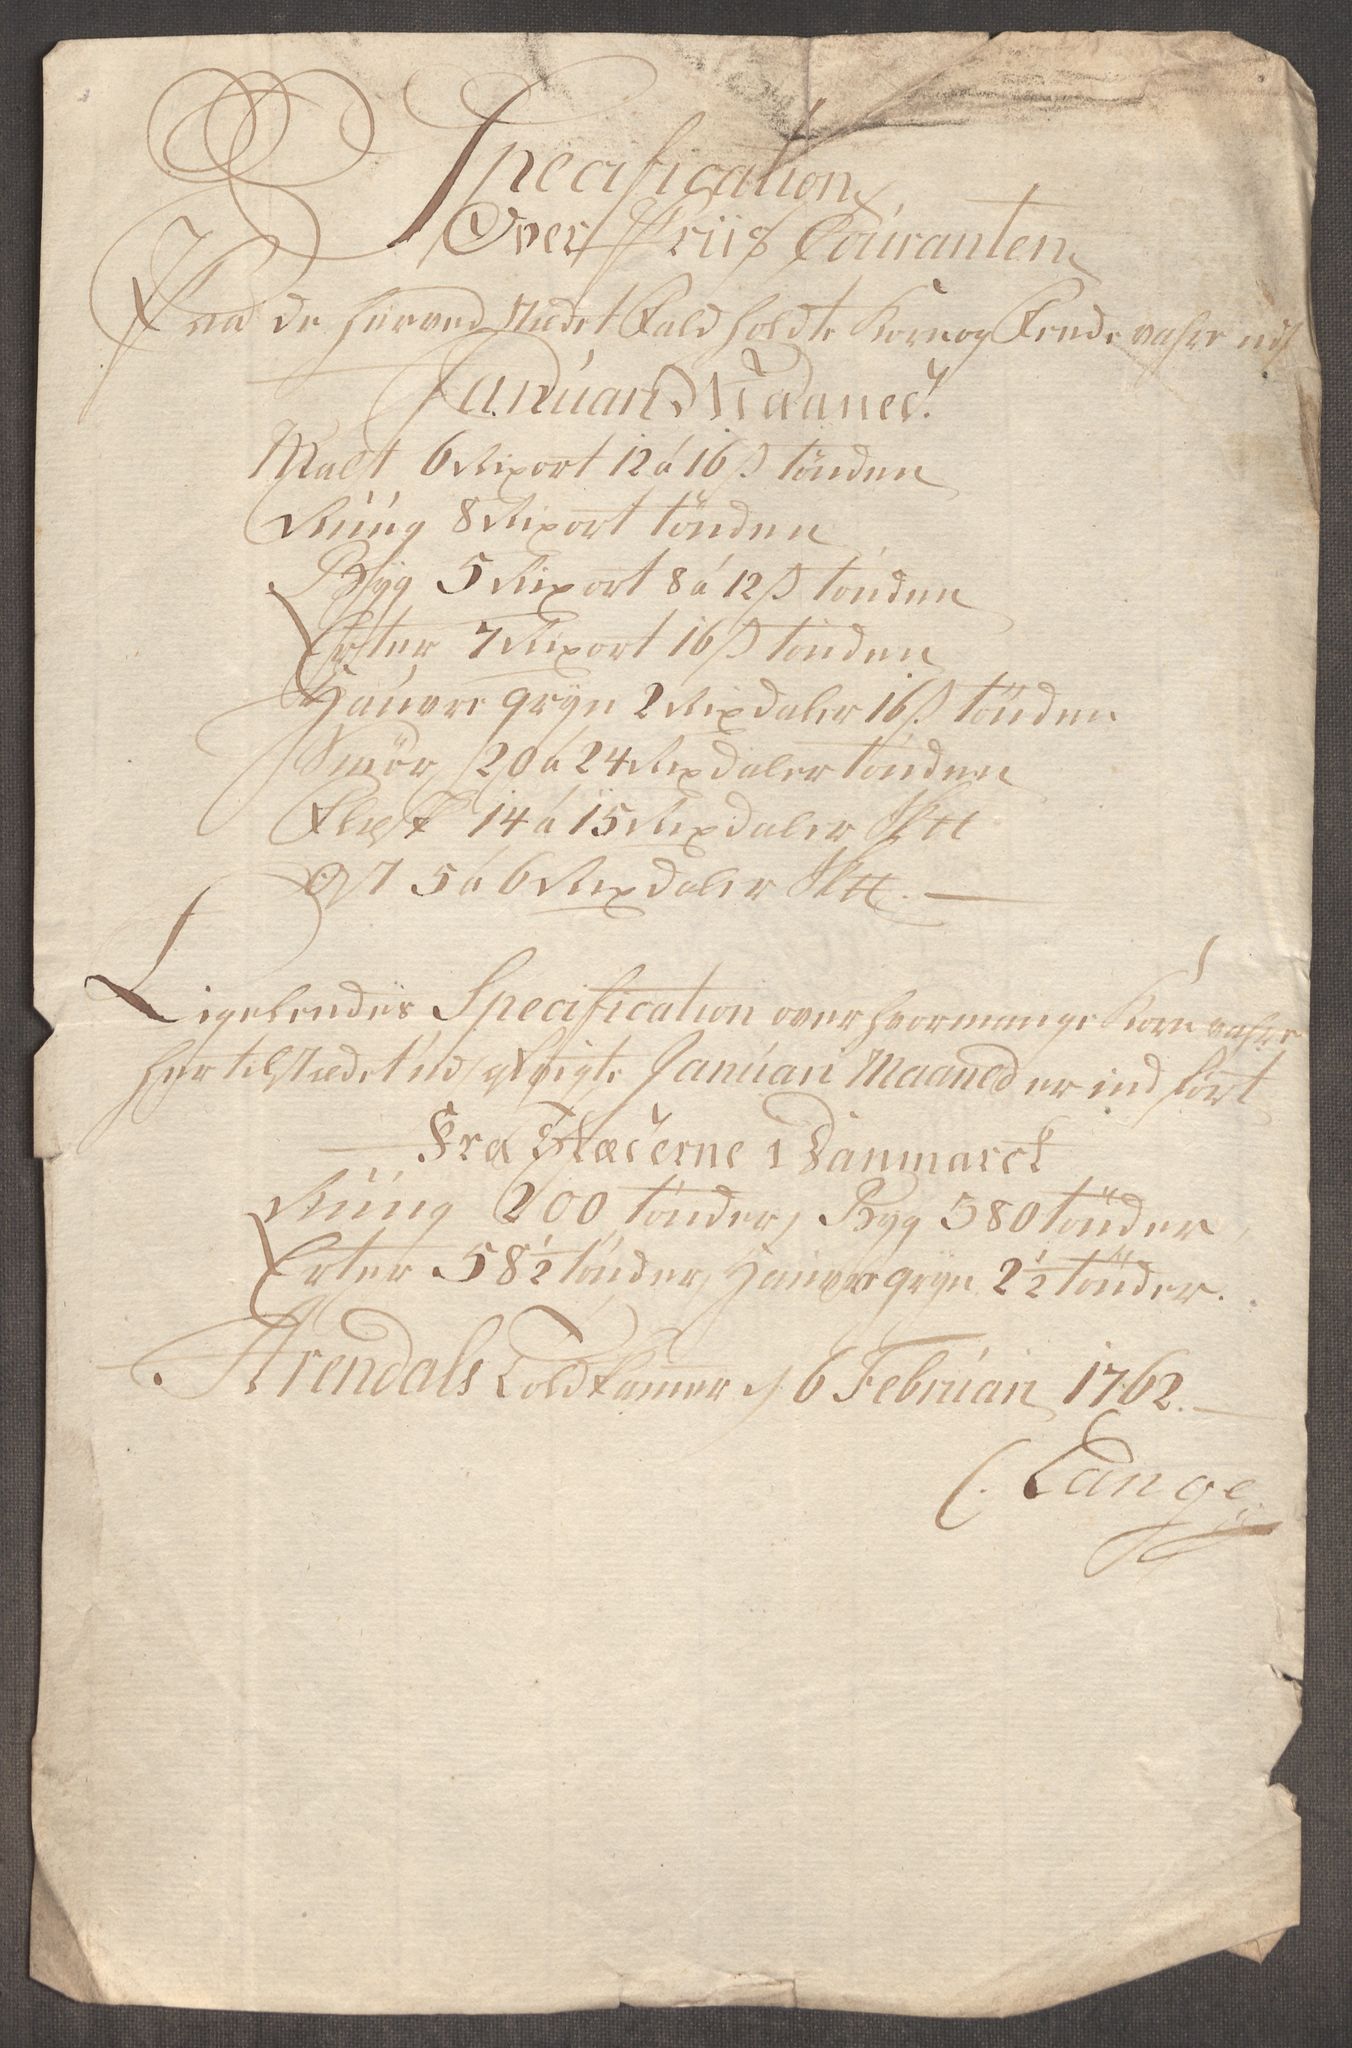 Specification
Over Priis Couranten
Paa de her ved Stædet Fald holdte Korn og Fede vahre udj
Januari Maaned.
Malt 6 Rixort 12 á 16 ß tönden
Rúúg 8 Rixort tönden
Byg 5 Rixort 8 á 12 ß tönden
Erter 7 Rixort 16 ß tönden
Haúvre gryn 2 Rixdaler 16 ß tönden
Smör 20 a 24 Rixdaler tönden
Flæsk 14 á 15 Rixdaler
Ost 5 á 6 Rixdaler
Ligeledes Specification over hvor mange Korn vahre
her til Stædet udj Januari Maaned er ind fört
Fra Stæderne i Danmarck
Rúúg 200 tönder, Byg 580 tönder,
Erter 58½ tönder, Haúvre gryn 2½ tönder.
Arendals Told Kamer d 6 Februari 1762.
C. Lange